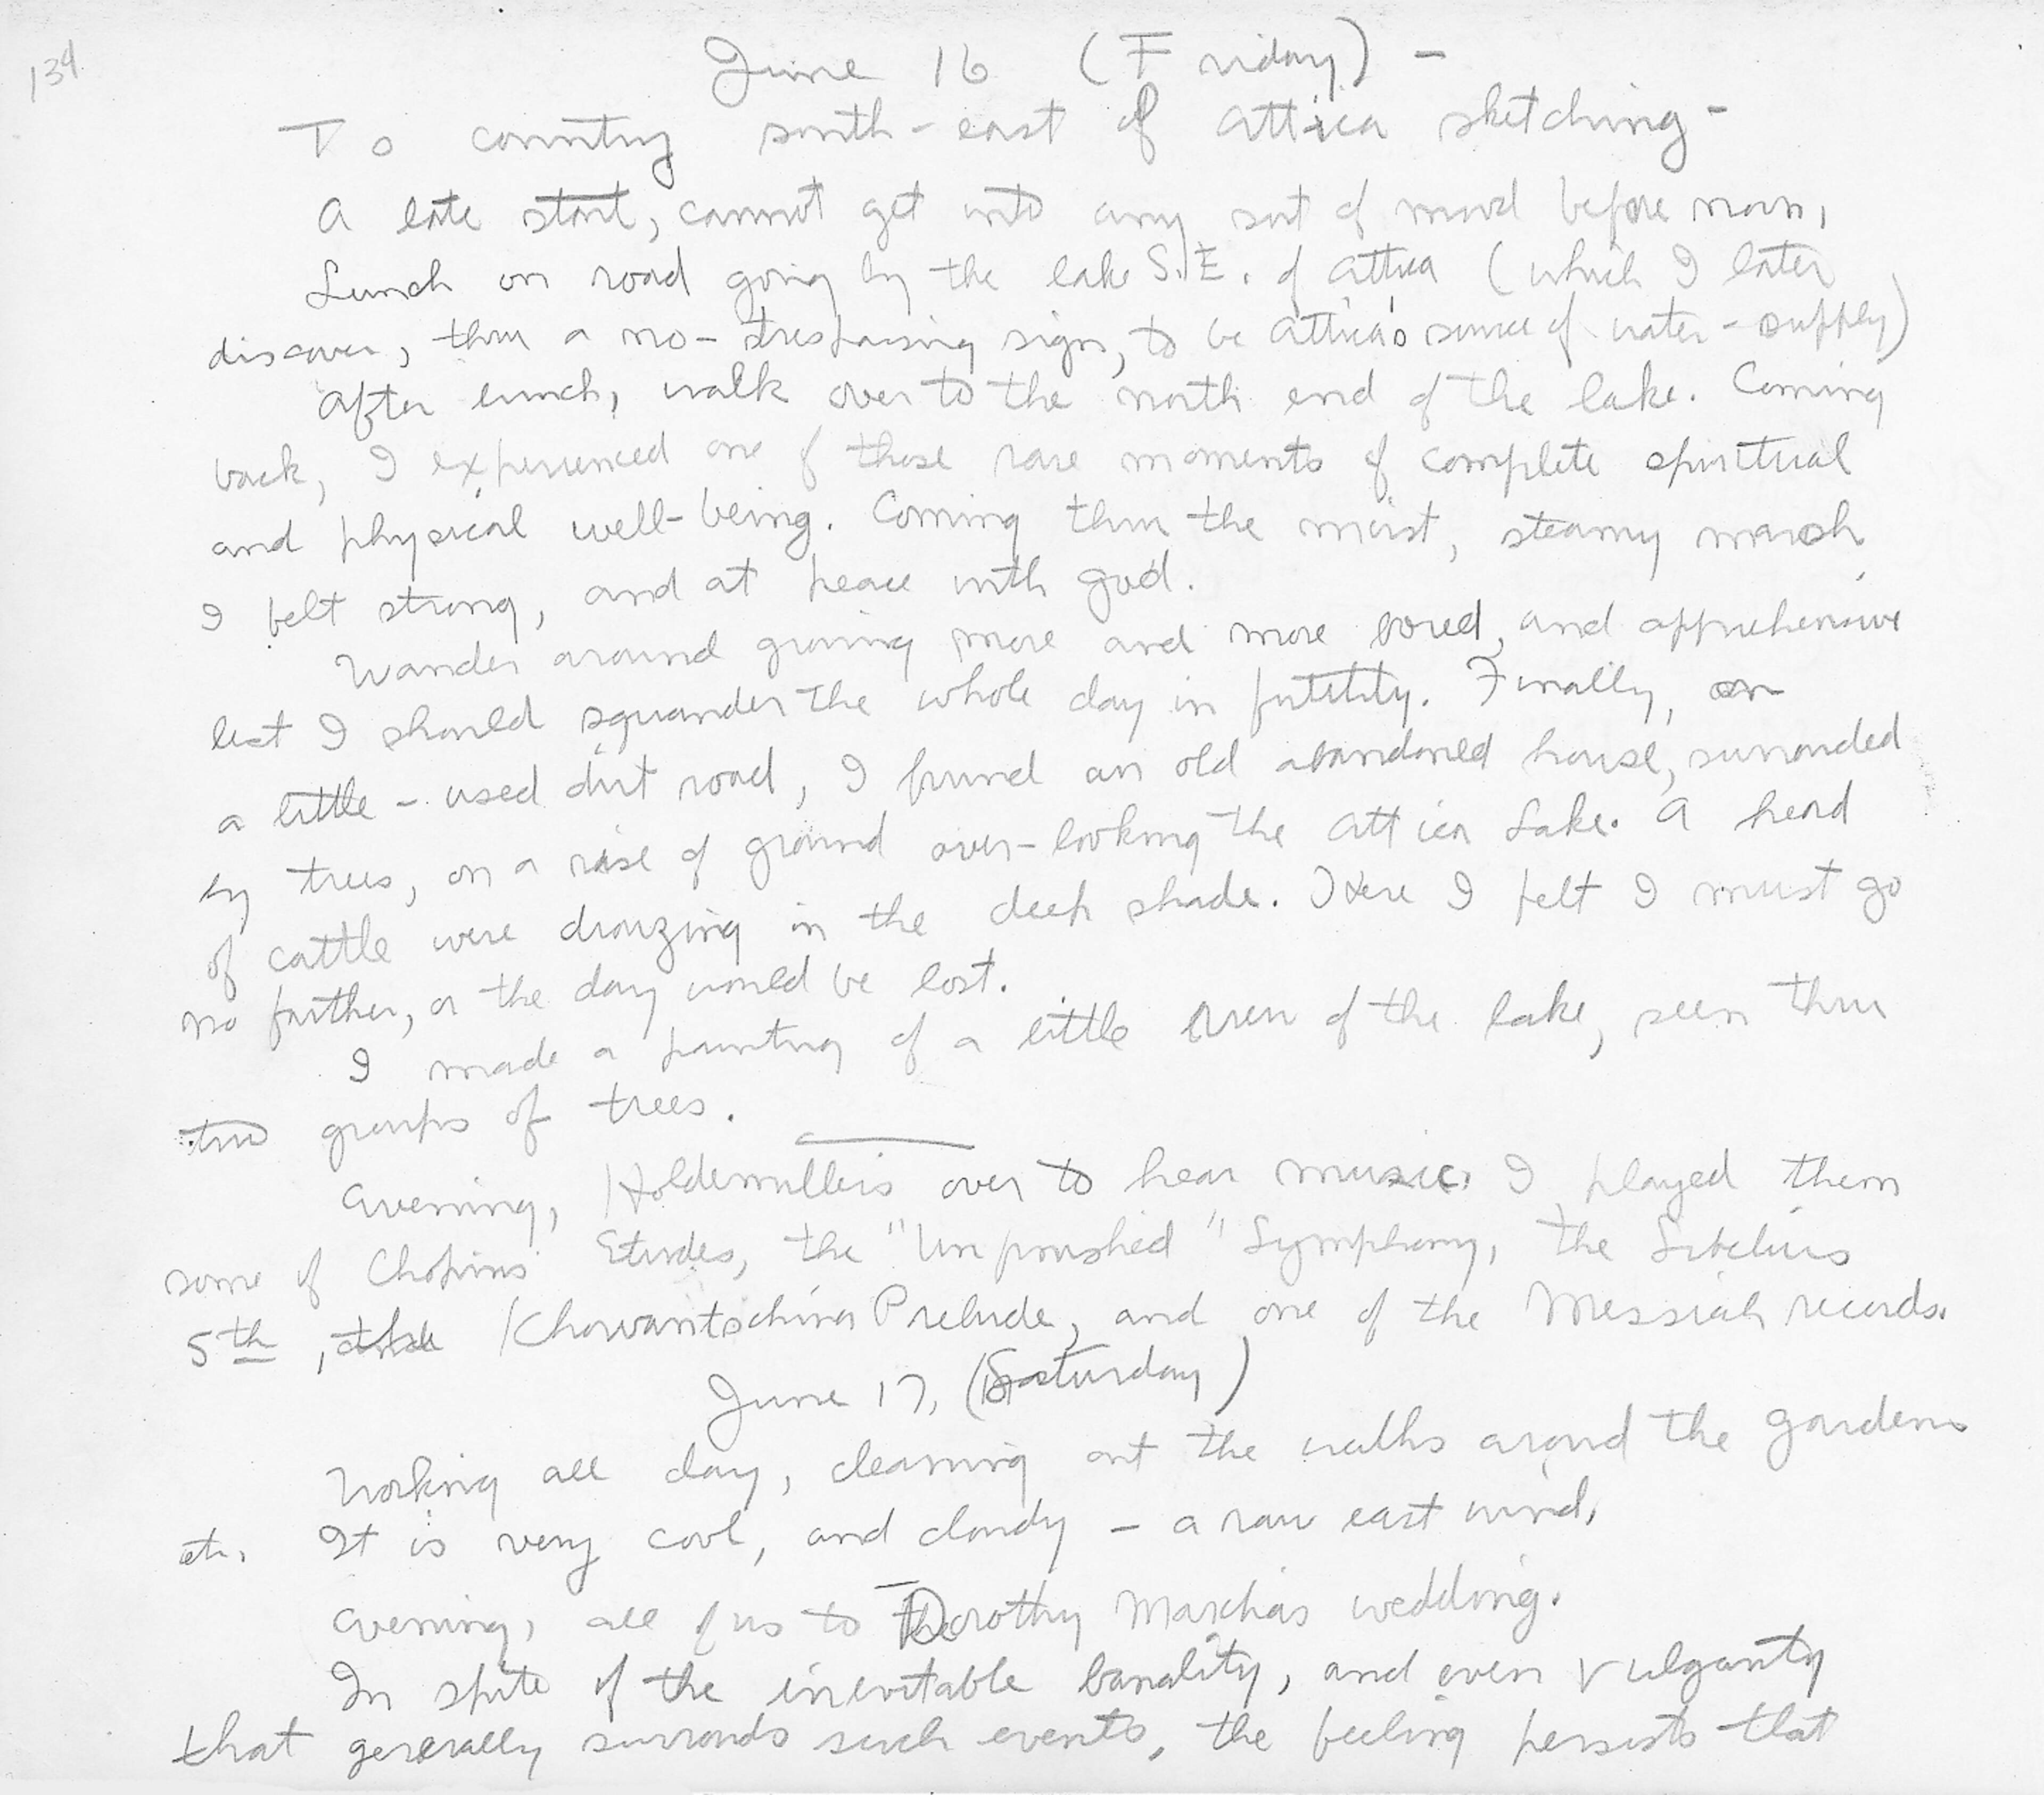 134
June 16 (Friday) -
To country south-east of Attica sketching -
A late start, cannot get into any sort of mood before noon,
Lunch on road going by the lake S.E. of Attica (which I later
discover, thru a no-trespassing sign, to be Attica's source of water-supply)
After lunch, walk over to the north end of the lake. Coming
back, I experienced one of those rare moments of complete spiritual
and physical well-being. Coming thru the moist, steamy marsh
I felt strong, and at peace with god.
Wander around growing more and more bored, and apprehensive
lest I should squander the whole day in futility. Finally, on
a little-used dirt road, I found an old abandoned house, surrounded
by trees, on a rise of ground over-looking the Attica Lake. A herd
of cattle were drowzing in the deep shade. Here I felt I must go
no farther, or the day would be lost.
I made a painting of a little view of the lake, seen thru
two groups of trees.
Evening, Holdermullers over to hear music. I played them
some of Chopins Etudes, the "Unfinished" Symphony, the Sibelius
5th, the Khowantschina Prelude, and one of the Messiah records.
June 17, (Saturday)
Working all day, cleaning out the walks around the gardens
etc. It is very cool, and cloudy - a raw east wind,
Evening, all of us to Dorothy wedding.
In spite of the inevitable banality, and even vulgarity
that generally surronds such events, the feeling persists that